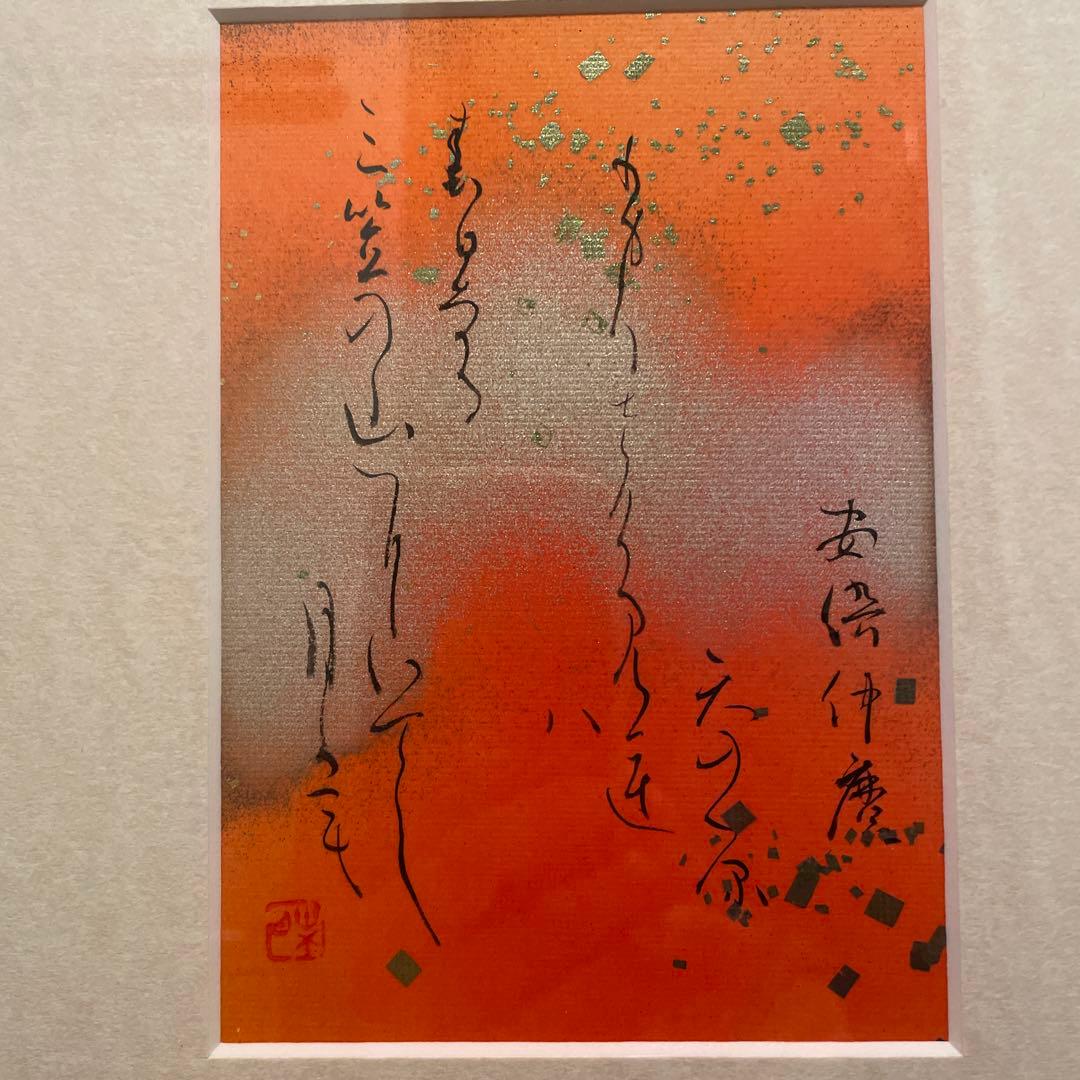 安倍仲麿
天の原
ふりさけ見連
八
春日なる
三笠の山にいてし
月か毛